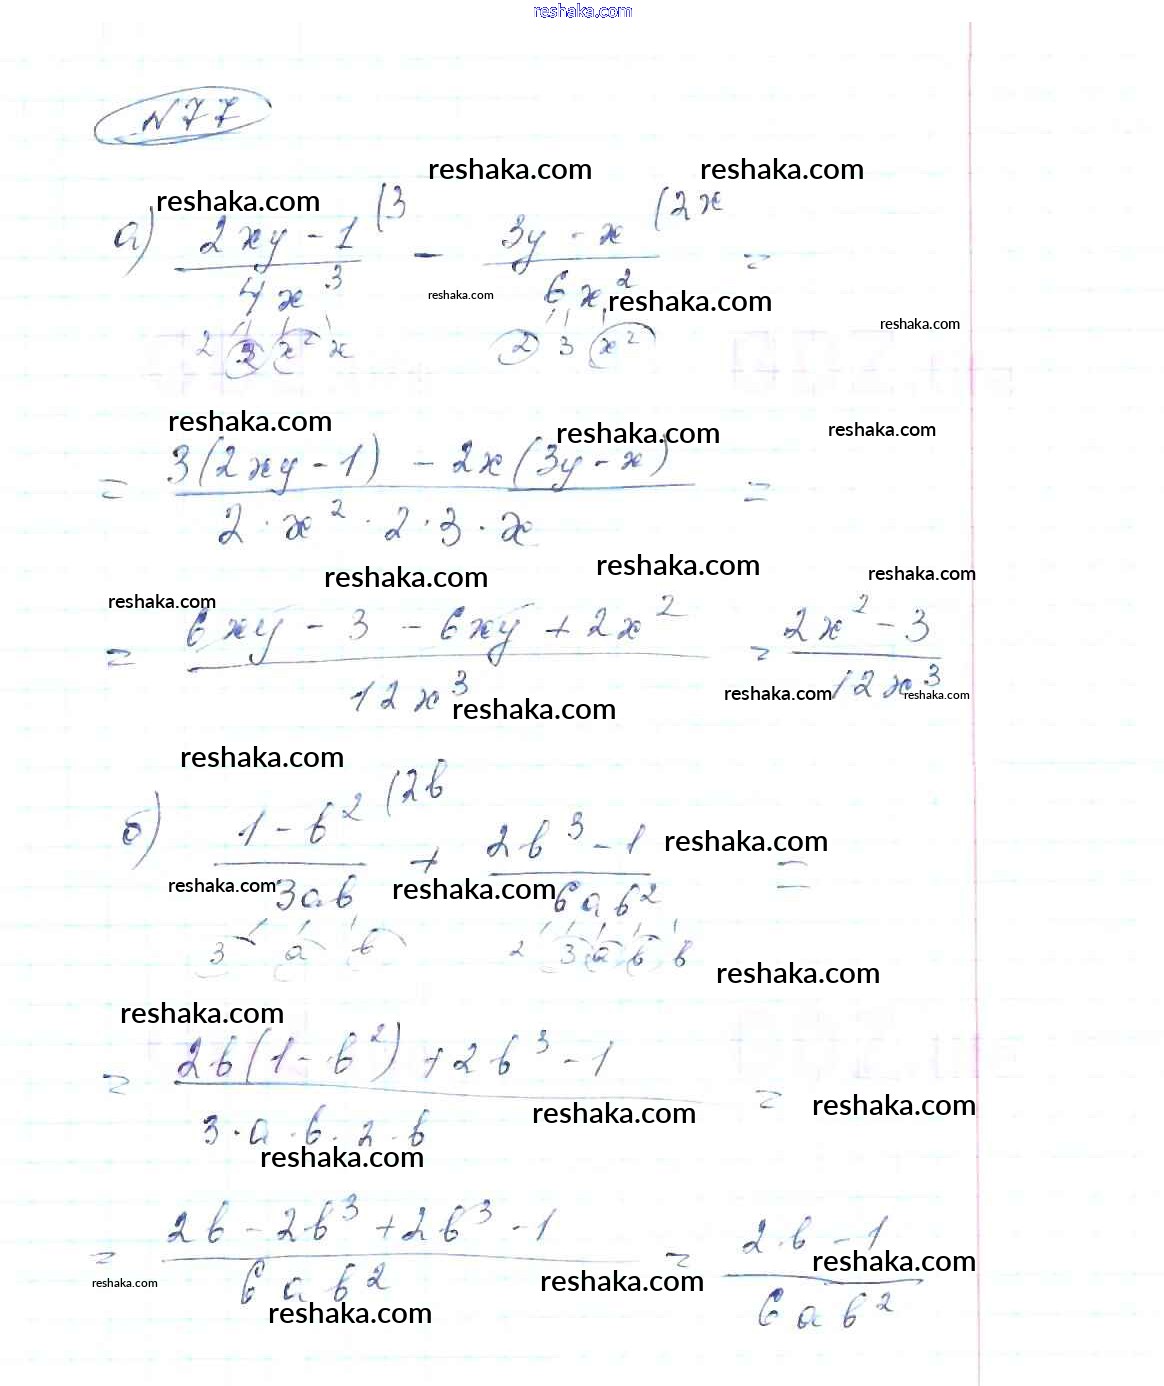 reshaka.com
N 77
reshaka.com reshaka.com
reshaka.com
а) (2xy - 1)/(4x³) (3 - (3y - x)/(6x²) (2x =
reshaka.com reshaka.com
reshaka.com
2 2 x² x 2 3 x²
reshaka.com reshaka.com reshaka.com
= (3(2xy - 1) - 2x(3y - x))/(2 · x² · 2 · 3 · x) =
reshaka.com reshaka.com reshaka.com
reshaka.com
= (6xy - 3 - 6xy + 2x²)/(12x³) = (2x² - 3)/(12x³)
reshaka.com reshaka.com reshaka.com
reshaka.com
б) (1 - b²)/(3ab) (2b + (2b³ - 1)/(6ab²) =
reshaka.com
reshaka.com reshaka.com
3 a b 2 3 a b b
reshaka.com
reshaka.com
= (2b(1 - b²) + 2b³ - 1)/(3 · a · b · 2 · b) =
reshaka.com reshaka.com
reshaka.com
= (2b - 2b³ + 2b³ - 1)/(6ab²) = (2b - 1)/(6ab²)
reshaka.com
reshaka.com reshaka.com
reshaka.com